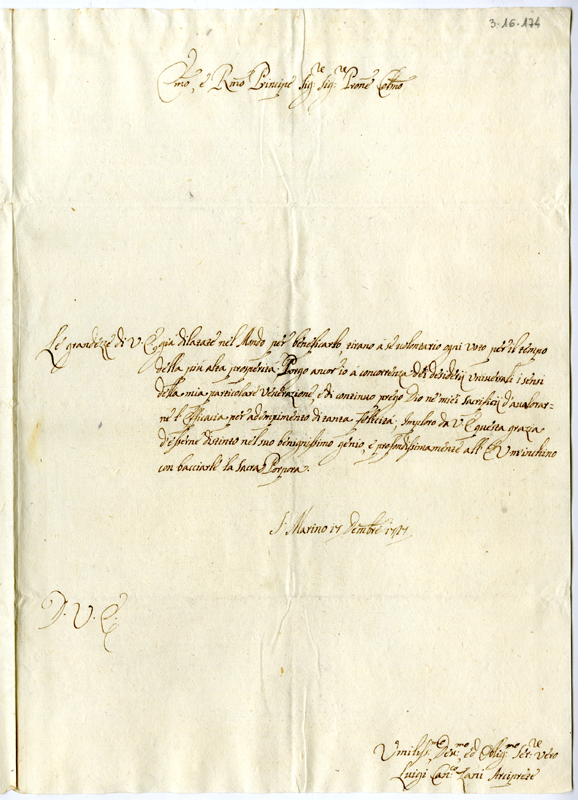 3-16-174
Emo, e Rmo Principe Sigre Sigre Prone Colmo
Le grandezze di V. E. già dilatate nel Mondo per beneficarlo tirano a sé volontario ogni voto per il tempo
della più alta prosperità. Porgo ancor io à concorrenza de desiderij universali i sensi
della mia particolare venerazione, e di continuo prego Dio ne miei Sacrificij d'avalorar=
ne l'efficacia per adempimento di tanta felicità. Imploro da V. E. questa grazia
d'essere distinto nel suo benignissimo genio, e profondissimamente all' E. V. m'inchino
con bacciarle la Sacra Porpora.
S. Marino 17 Dembre
D. V. E.
Umiliss. Devmo ed Obligmo Serre Vero
Luigi Canco Zani Arciprete